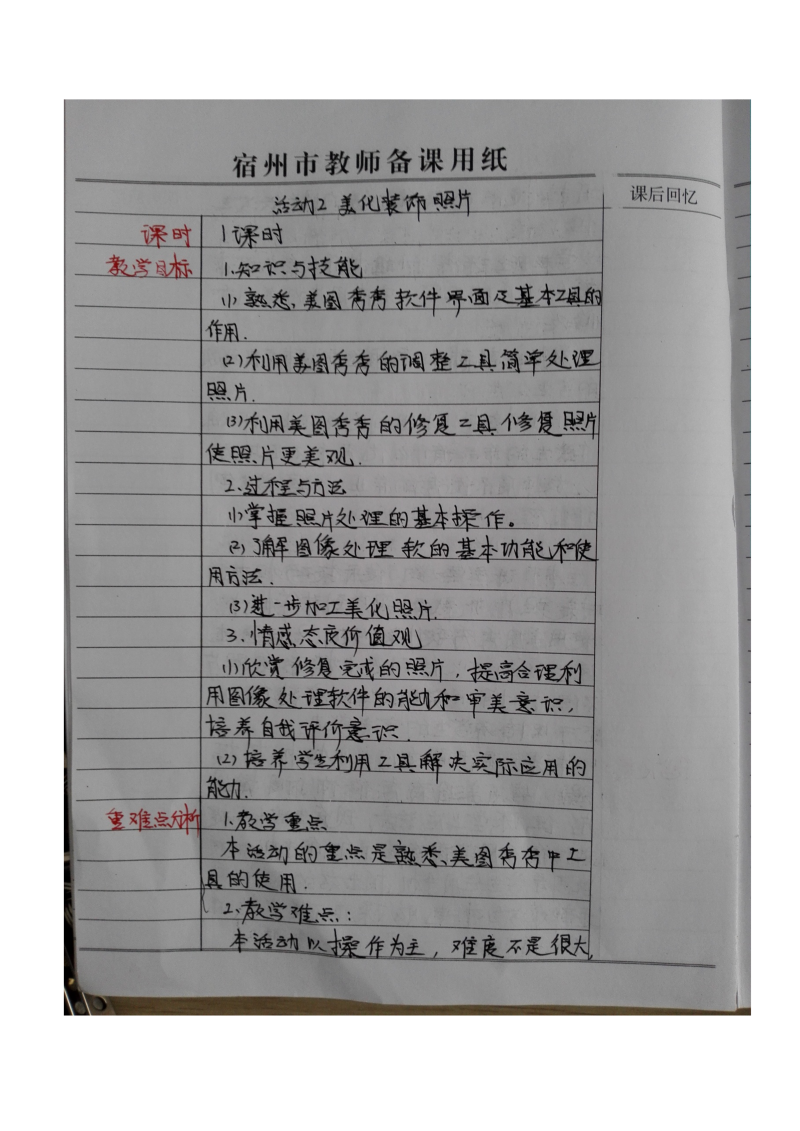 宿州市教师备课用纸
课后回忆
活动2 美化装饰照片
课时 1课时
教学目标 1.知识与技能
(1)熟悉美图秀秀软件界面及基本工具的
作用.
(2)利用美图秀秀的调整工具简单处理
照片.
(3)利用美图秀秀的修复工具修复照片
使照片更美观.
2.过程与方法
(1)掌握照片处理的基本操作。
(2)了解图像处理软的基本功能和使
用方法.
(3)进一步加工美化照片.
3.情感态度价值观
(1)欣赏修复完成的照片，提高合理利
用图像处理软件的能力和审美意识，
培养自我评价意识.
(2)培养学生利用工具解决实际应用的
能力.
重难点分析 1.教学重点
本活动的重点是熟悉美图秀秀中工
具的使用.
2.教学难点：
本活动以操作为主，难度不是很大，